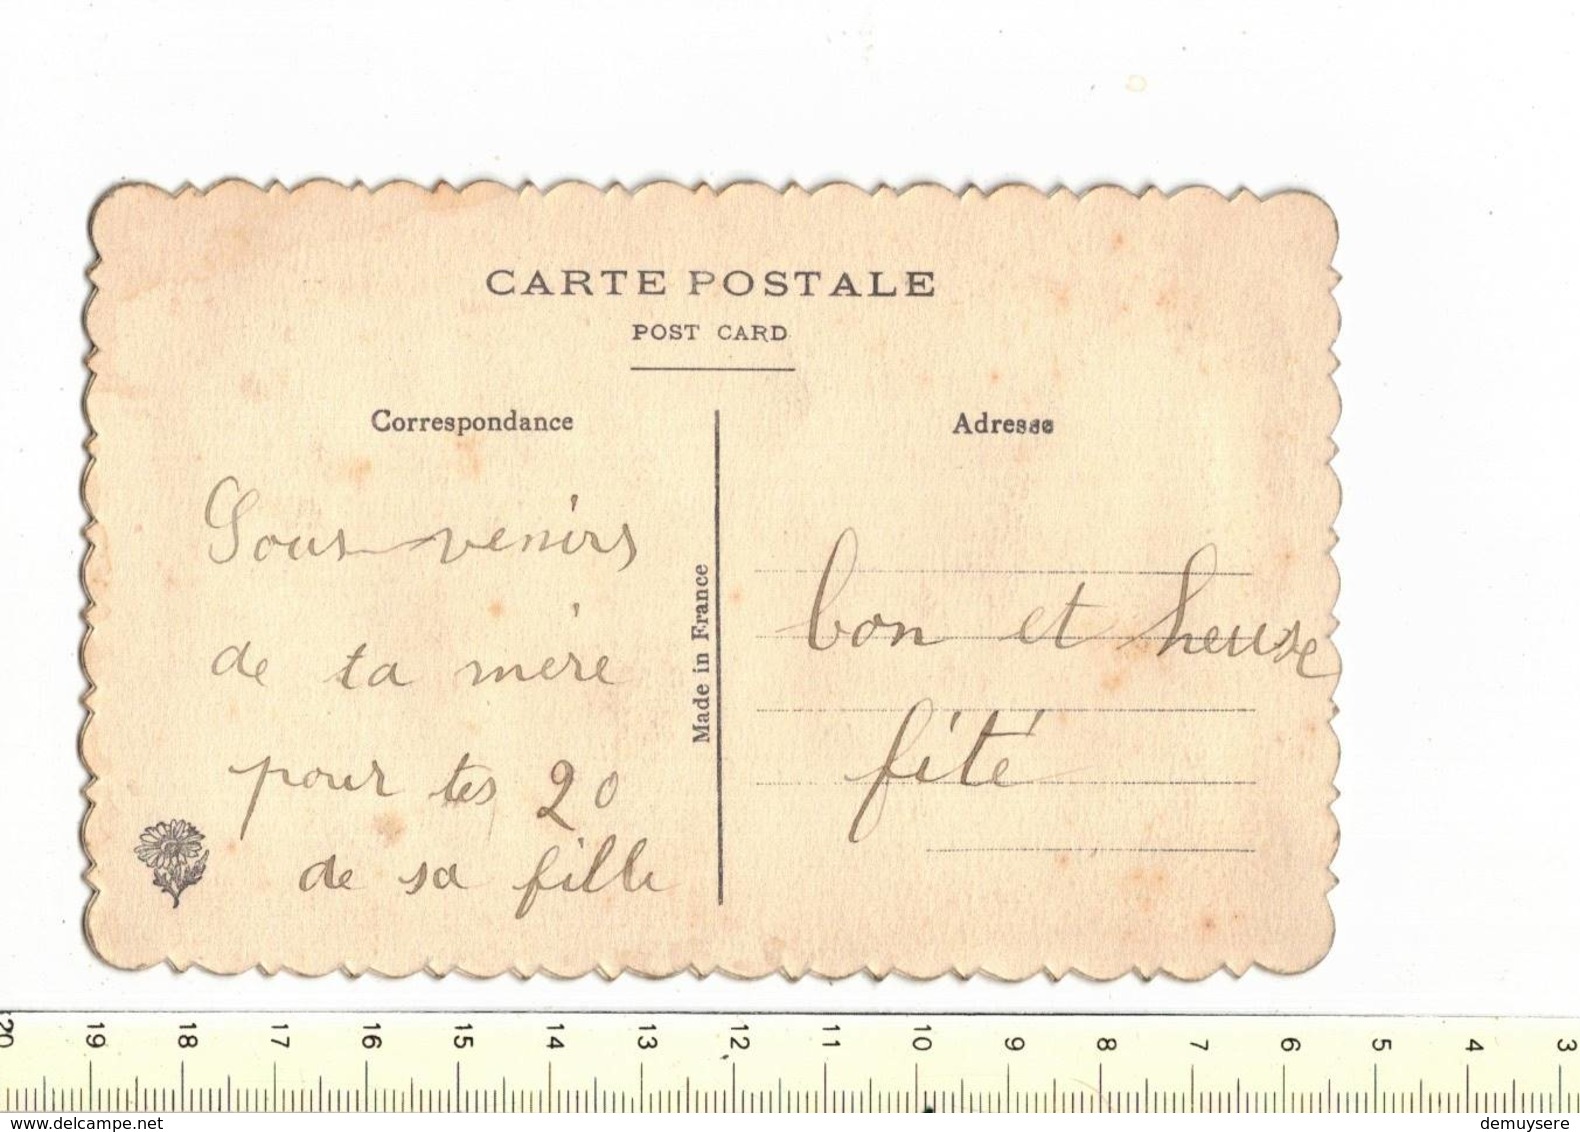 CARTE POSTALE
POST CARD
Correspondance
Sous venirs
de ta mère
pour tes 20
de sa fille
Made in France
Adresse
bon et heuse
fité
20 19 18 17 16 15 14 13 12 11 10 9 8 7 6 5 4 3
www.delcampe.net
demuysere